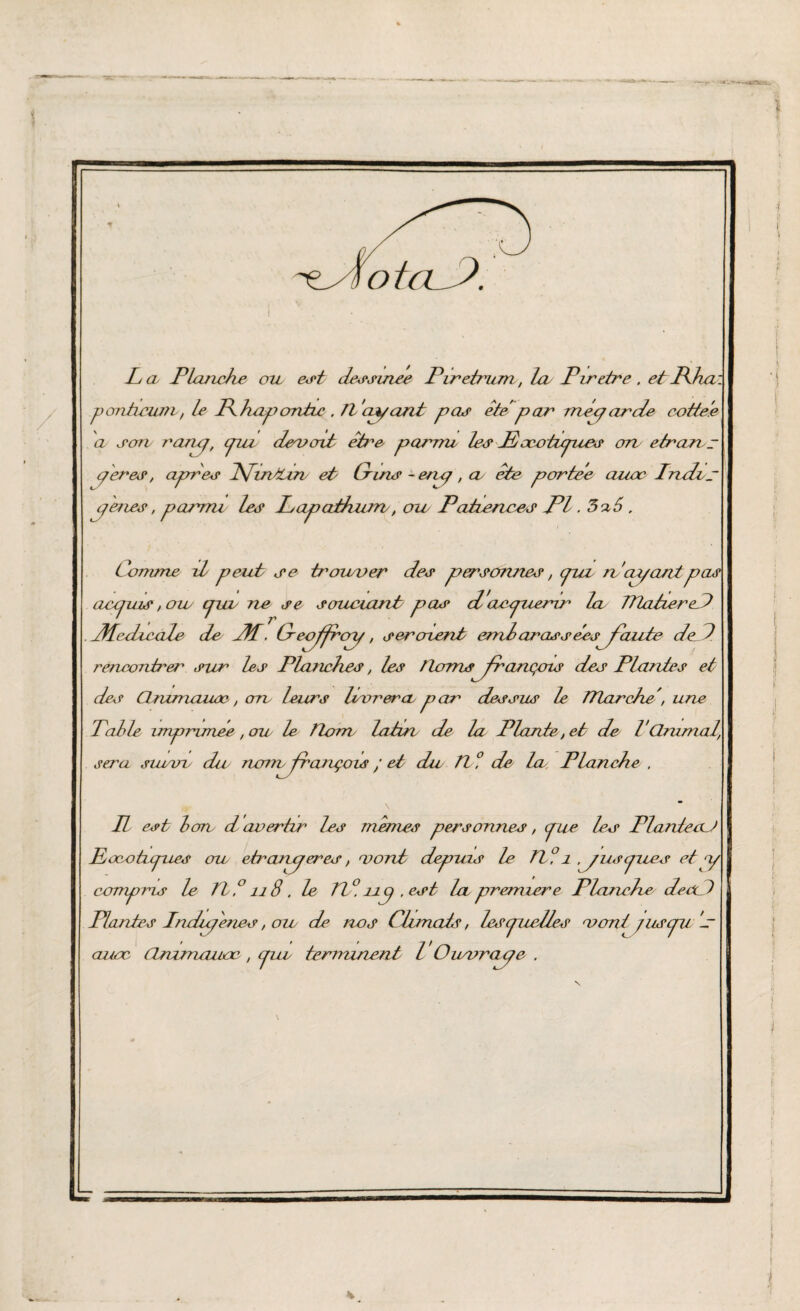 Nota.
La Planche ou est dessineé Piretrum, la Piretre. et Rha-
ponticum, le Rhapontic. N'ayant pas été par mégarde cotteé
a son rang, qui devoit être parmi les Exotiques ou etran-
geres, apres Nintin et Gins-eng, a éte porteé aux Indi-
genes, parmi les Lapathum, ou Patiences Pl. 326.
Comme il peut se trouver des personnes, qui n'ayant pas
acquis, ou qui ne se souciant pas d'acquerir la Matiere
Medicale de Mr. Geoffroy, seroient embarasseés faute de
rencontrer sur les Planches, les Noms françois des Plantes et
des Animaux, on leurs livrera par dessus le Marché, une
Table impriméé, ou le Nom latin de la Plante, et de l'Animal,
sera suivi du nom françois; et du N.º de la Planche.
Il est bon d'avertir les mêmes personnes, que les Plantes
Exotiques ou etrangeres, vont depuis le N.º 1. jusques et y
compris le N.º 118. le N.º 119. est la premiere Planche des
Plantes Indigenes, ou de nos Climats, lesquelles vont jusqu'-
aux Animaux, qui terminent l'Ouvrage.